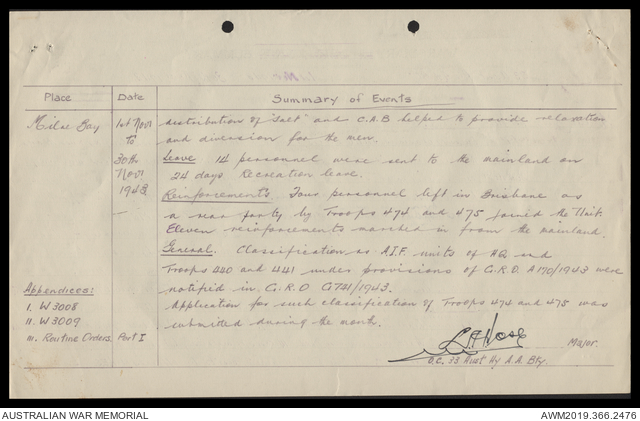 Place Date Summary of Events
Milne Bay 1st Nov to 30th Nov 1943
distribution of "Salt" and C.A.B helped to provide relaxation
and diversion for the men.
Leave 14 personnel were sent to the mainland on
24 days Recreation leave.
Reinforcements. Four personnel left in Brisbane as
a rear party by Troops 474 and 475 joined the Unit.
Eleven reinforcements marched in from the mainland.
General. Classification as A.I.F. units of HQ and
Troops 440 and 441 under provisions of G.R.O. A170/1943 were
notified in G.R.O G741/1943.
Application for such classification of Troops 474 and 475 was
submitted during the month.
Appendices:
I. W3008
II. W3009
III. Routine Orders Part I
Major.
O.C. 33 Aust Hy A.A. Bty.
AUSTRALIAN WAR MEMORIAL
AWM2019.366.2476